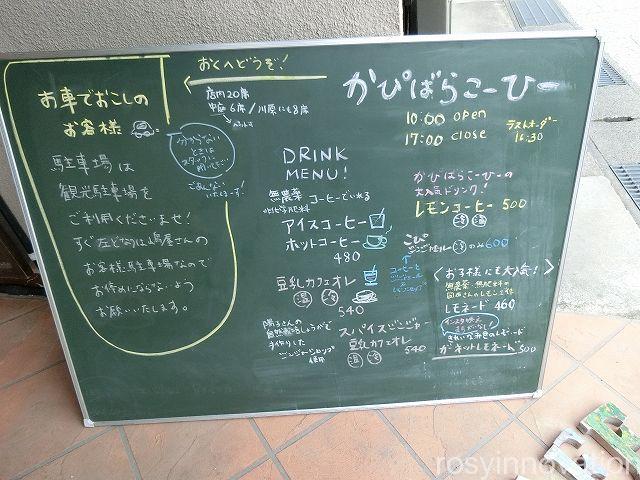 おくへどうぞ!
かぴばらこーひー
10:00 open
17:00 close
ラストオーダー
16:30
お車でおこしの
お客様
駐車場は
観光駐車場を
ご利用くださいませ!
すぐ左どなりは嶋屋さんの
お客様駐車場なので
お停めにならないよう
お願いいたします。
分からない
ときは
スタッフに
店内20席
中庭6席/川原にも8席
DRINK
MENU!
無農薬
コーヒーでいれる
アイスコーヒー
ホットコーヒー
480
豆乳カフェオレ
温 冷
540
自然栽培しょうがで
手作りした
ジンジャーシロップ
使用
スパイスジンジャー
豆乳カフェオレ
温 冷 540
かぴばらこーひーの
大人気ドリンク!
レモンコーヒー 500
冷 温
こぴ
冷 のみ 600
コーヒーと
<お子様にも大人気!
レモネード 460
きれいな赤色のレモネード
ガーネットレモネード 500
rosyinnovation